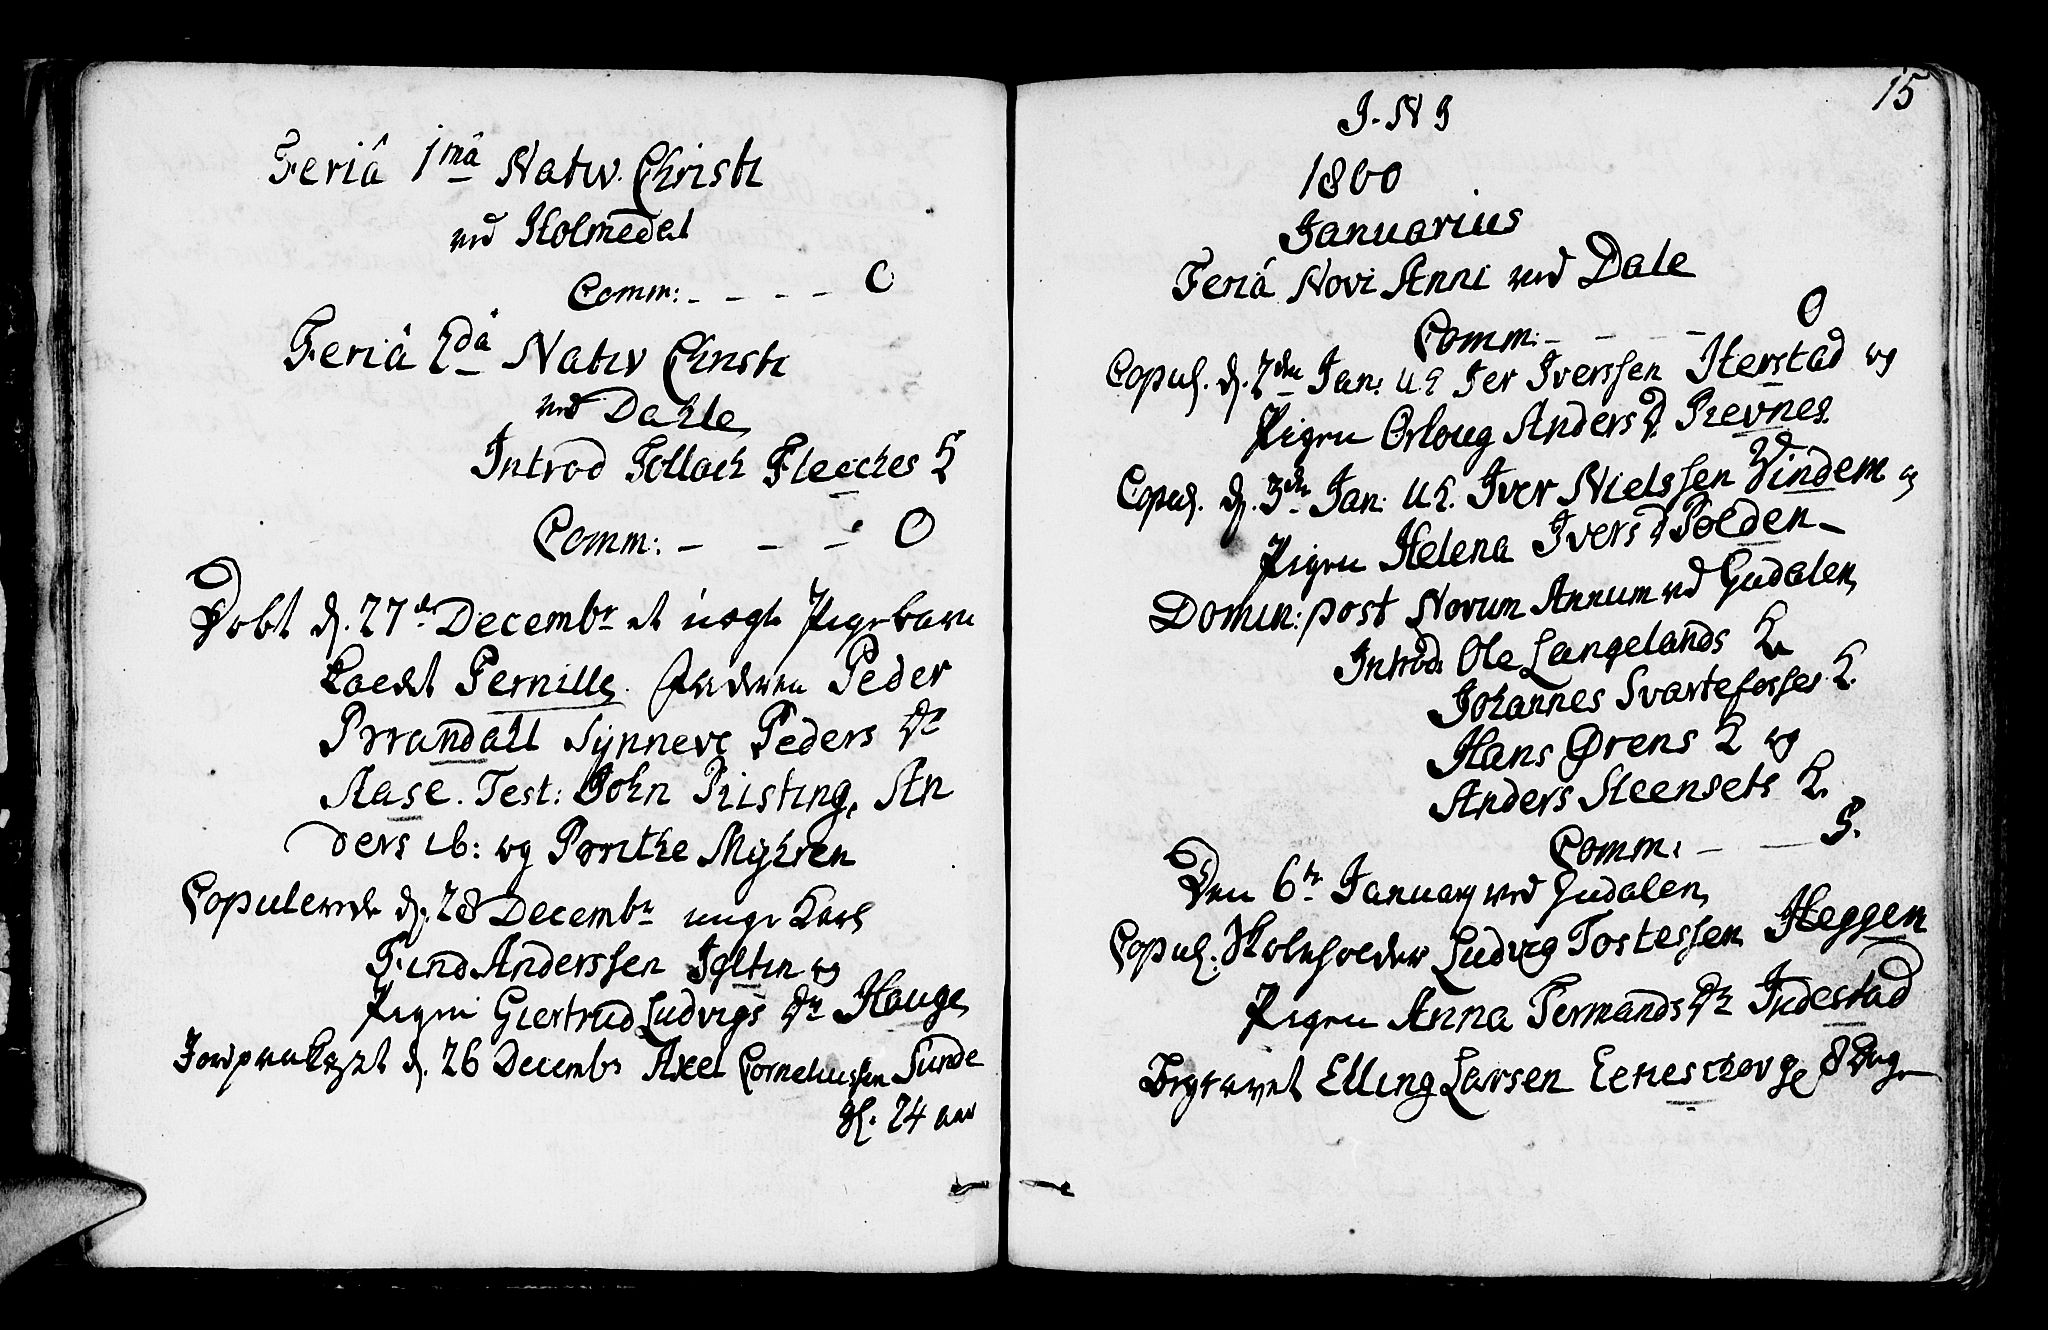 Feriâ 1mâ Nativ. Christi
ved Holmedal
Comm: - - - - 0
Feriâ 2dâ Nativ Christi
ved Dahle
Introd Tollach Fleeches K
Comm: - - - 0
Døbt d. 27d Decembr et uægte Pigebarn
kaldt Pernille. Faderen Peder
Prrandahl Synneve Peders Dr
Aase. Test: John Risting, An
ders ib: og Brithe Myhren
Copulerede d. 28 Decembr unge Karl
Find Anderssen og
Pigen Giertrud Ludvigs Dr Hauge
Jordpaakast d. 26 Decembr Axel Corneliussen Sunde
gl. 24 aar
15
J. N J
1800
Januarius
Feriâ Novi Anni ved Dale
Comm: - - - 0
Copul. d. 2den Jan: UK Jer Iverssen Herstad og
Pigen Orloug Anders D. Revnes.
Copul. d. 3die Jan: UK. Iver Nielssen Vindem og
Pigen Helena Ivers D Polden
Domin: post Novum Annum ved Gudalen
Introd: Ole Langelands K.
Johannes Svartefosses K.
Hans Ørens K og
Anders Steensets K.
Comm: - - 5.
Den 6te January ved Gudalen
Copul: Skoleholder Ludvig Tostessen Heggem
Pigen Anna Fermands Dr Indestad
Begravet Elling Larsen 8 Dage